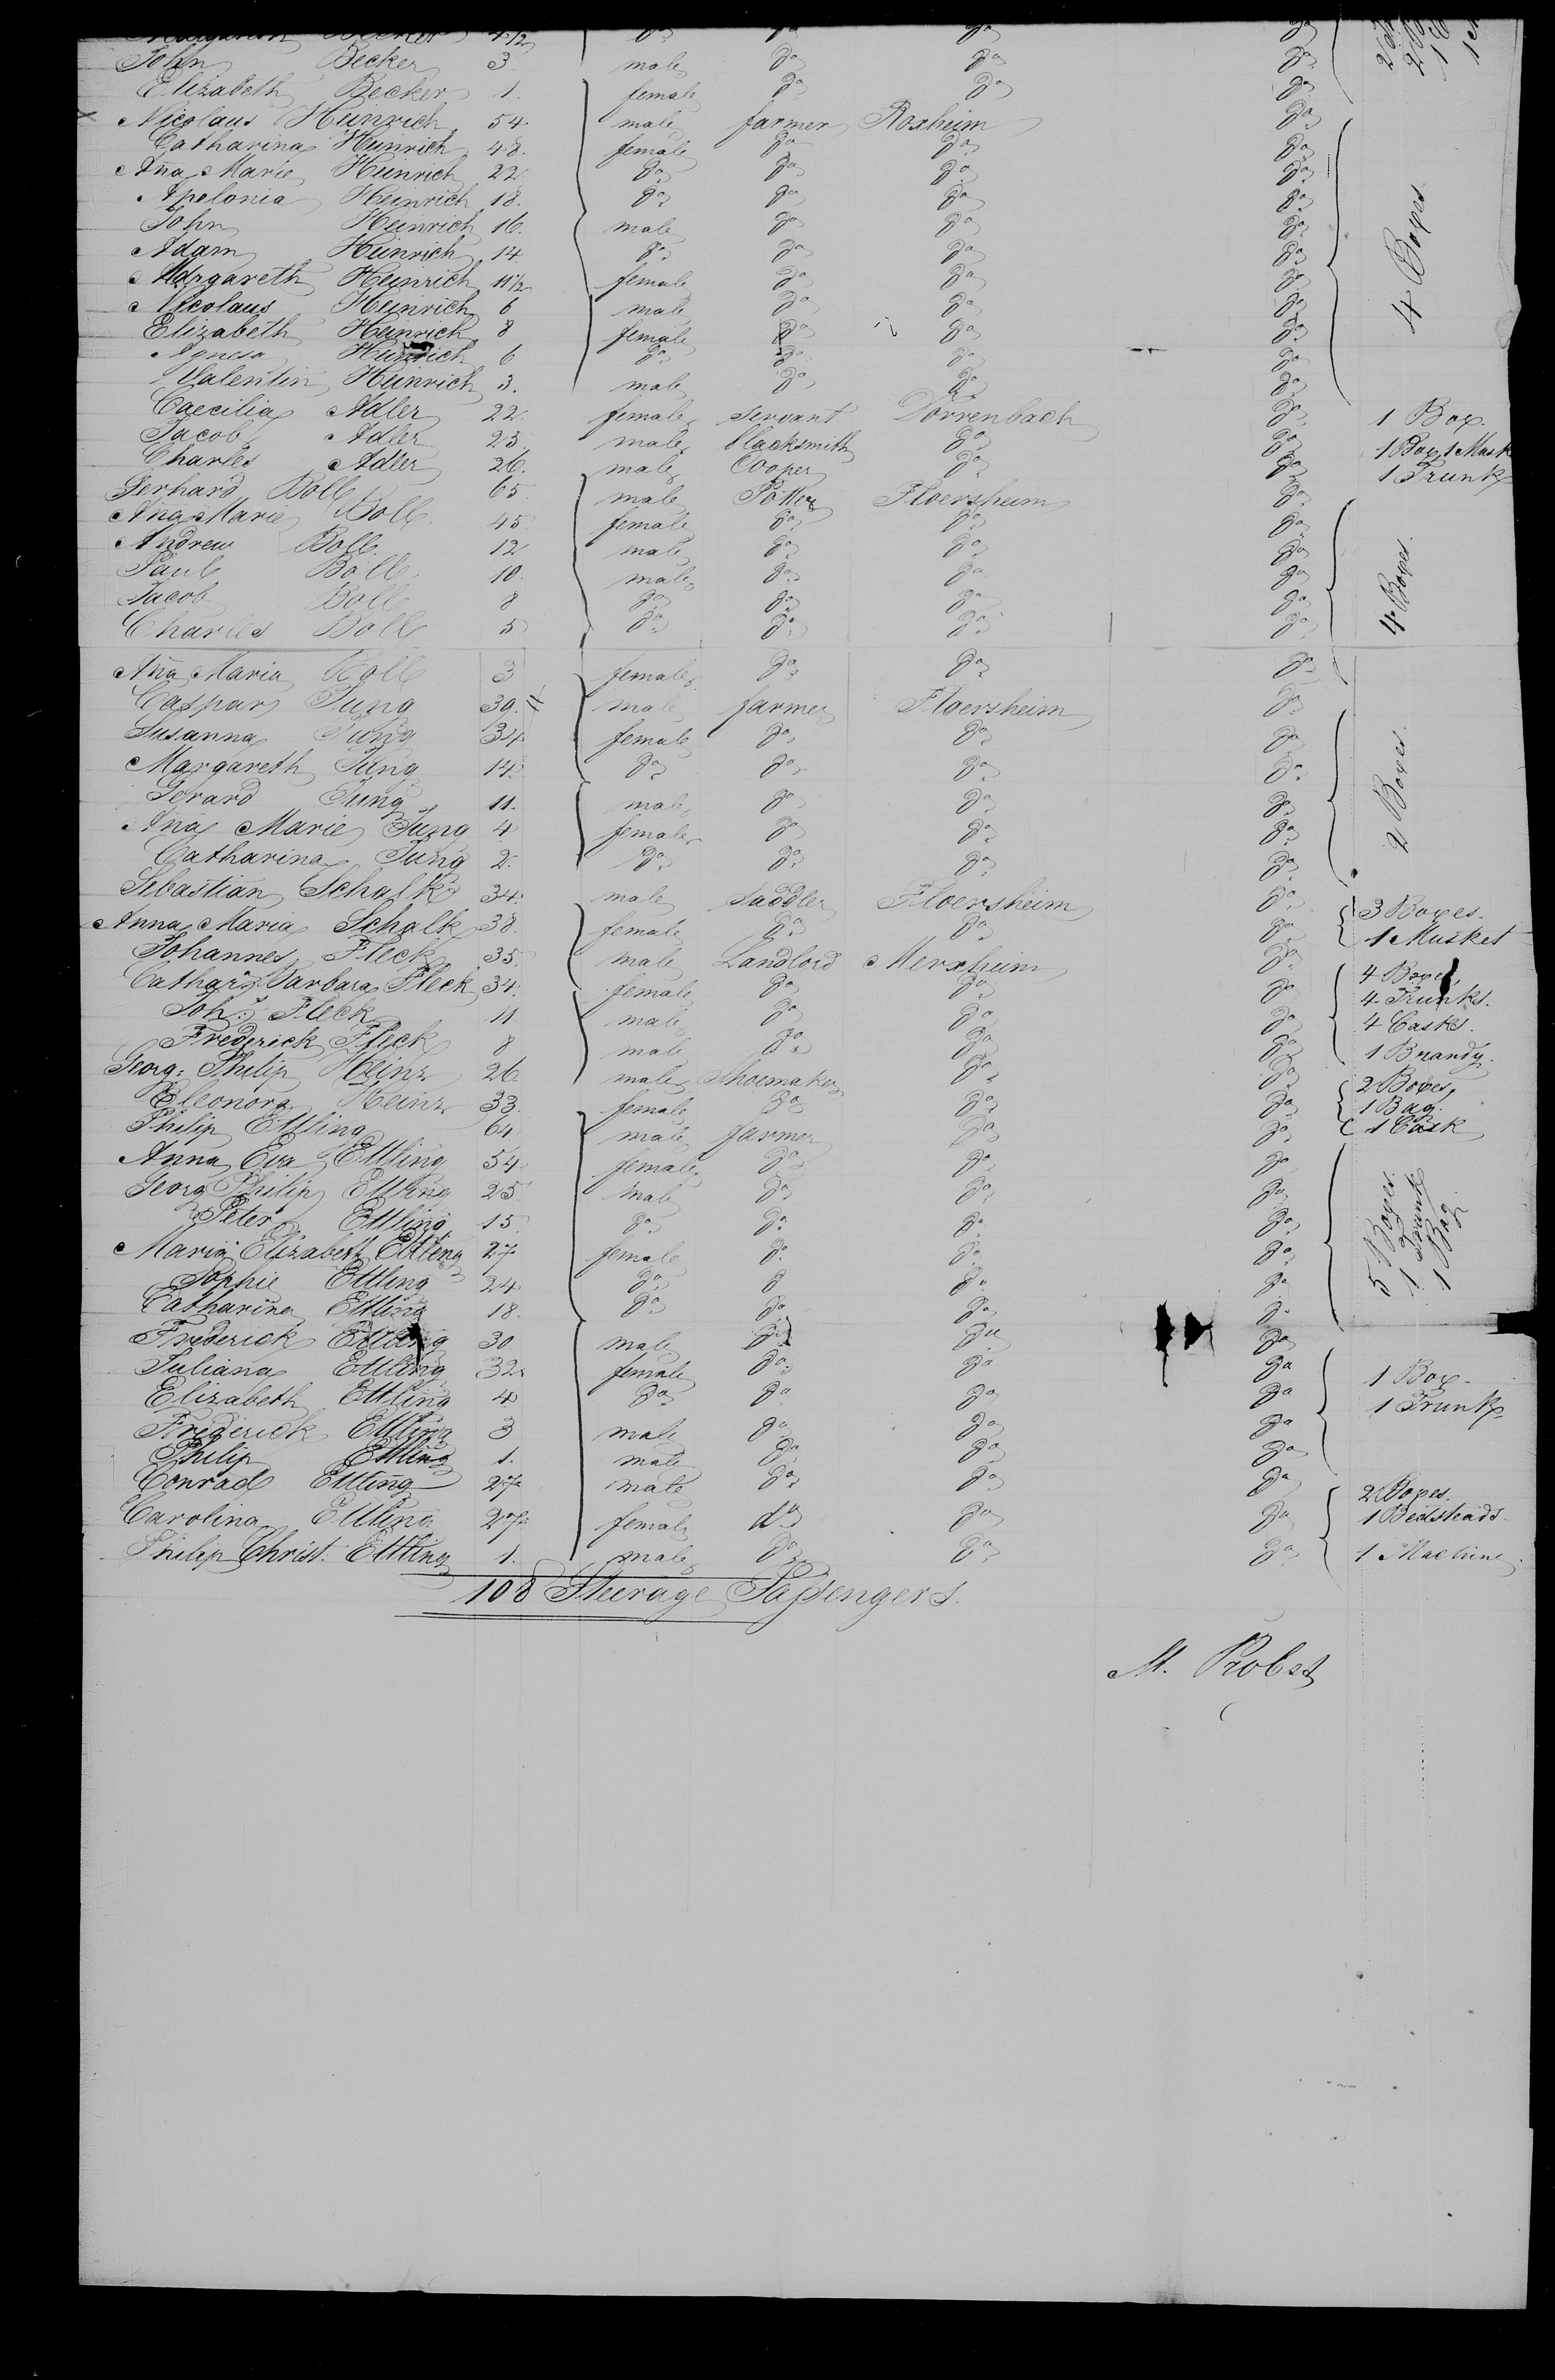 Becker 4 1/2 do do do do
John Becker 3 male do do do
Elizabeth Becker 1. female do do do
Nicolaus Heinrich 54. male farmer Roxheim do
Catharina Heinrich 48. female do do do
Aña Marie Heinrich 22 do do do do
Apelonia Heinrich 18. do do do do
John Heinrich 16. male do do do
Adam Heinrich 14 do do do do
Margareth Heinrich 11 1/2 female do do do
Nicolaus Heinrich 6 male do do do
4 Boxes.
Elizabeth Heinrich 8 female do do do
Agnesa Heinrich 6 do do do do
Valentin Heinrich 3. male do do do
Caecilia Adler 22 female servant Dörrenbach do 1 Box.
Jacob Adler 25 male blacksmith do do 1 Box, 1 Musk
Charles Adler 26. male Cooper do do 1 Trunk
Gerhard Boll 65 male Potter Floersheim do
Aña Marie Boll 45 female do do do
Andrew Boll. 12 male do do do
Paul Boll 10. male do do do
4 Boxes.
Jacob Boll 8 do do do do
Charles Boll 5 do do do do
Aña Maria Boll 3 female do do do
Caspar Jung 30. male farmer Floersheim do
Susanna Jung 34 female do do do
Margareth Jung 14 do do do do
2 Boxes.
Gerard Jung 11. male do do do
Aña Marie Jung 4 female do do do
Catharina Jung 2. do do do do
Sebastian Schalk 34. male Saddler Floersheim do 3 Boxes.
Anna Maria Schalk 38. female do do do 1 Musket
Johannes Fleck 35. male Landlord Merxheim do 4 Boxes,
Barbara Fleck 34. female do do do 4 Trunks.
Joh: Fleck 11 male do do do 4 Casks.
Frederick Fleck 8 male do do do 1 Brandy.
Georg: Philip Heinz 26 male Shoemaker do do 2 Boxes,
Eleonora Heinz 33. female do do do 1 Bag.
Philip Ettling 64 male farmer do do 1 Cask
Anna Eva Ettling 54 female do do do
Georg Philip Ettling 25 male do do do
Peter Ettling 15 do do do do
5 Boxes.
1 Trunk
1 Bag.
Maria Elizabeth Ettling 27 female do do do
Sophie Ettling 24 do do do do
Catharina Ettling 18. do do do do
Frederick Ettling 30 male do do do
Juliana Ettling 32 female do do do 1 Box.
Elizabeth Ettling 4 do do do do 1 Trunk
Frederick Ettling 3 male do do do
Philip Ettling 1. male do do do
Conrad Ettling 27 male do do do 2 Boxes.
Carolina Ettling 27 female do do do 1 Bedsteads.
Philip Christ. Ettling 1. male do do do 1 Machine.
108 Steerage Passengers.
M. Probst